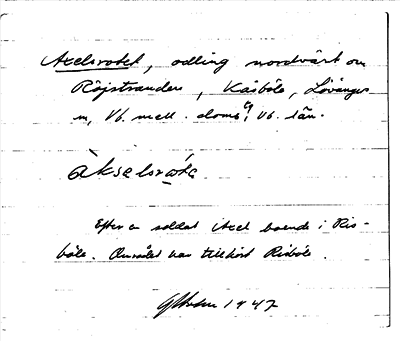 Axelsrotet, odling nordväst om
Röjstranden, Kåsböle, Lövångers
sn, Vb. mell. doms., Vb. län.
àkselsrɷ́tə
Efter en soldat Axel boende i Ris-
böle. Området har tillhört Risböle.
1947